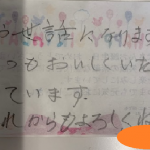 お世話になります
つもおいしくいた
ています。
れからもよろしくね